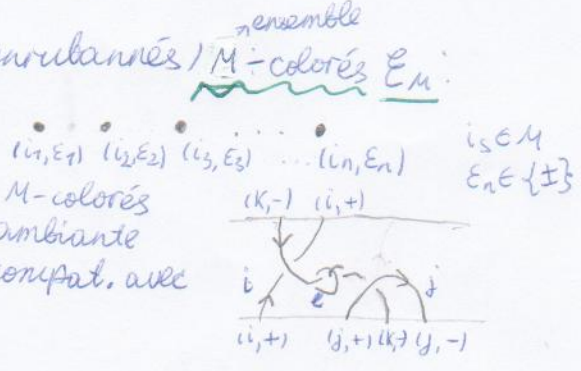 ensemble
enrubannés / M-colorés ℰ_M :
(i₁,ε₁) (i₂,ε₂) (i₃,ε₃) ... (iₙ,εₙ) iₛ ∈ M
εₙ ∈ {±}
M-colorés
(k,-) (i,+)
ambiante
compat. avec
i j
(i,+) (j,+) (k,-) (j,-)